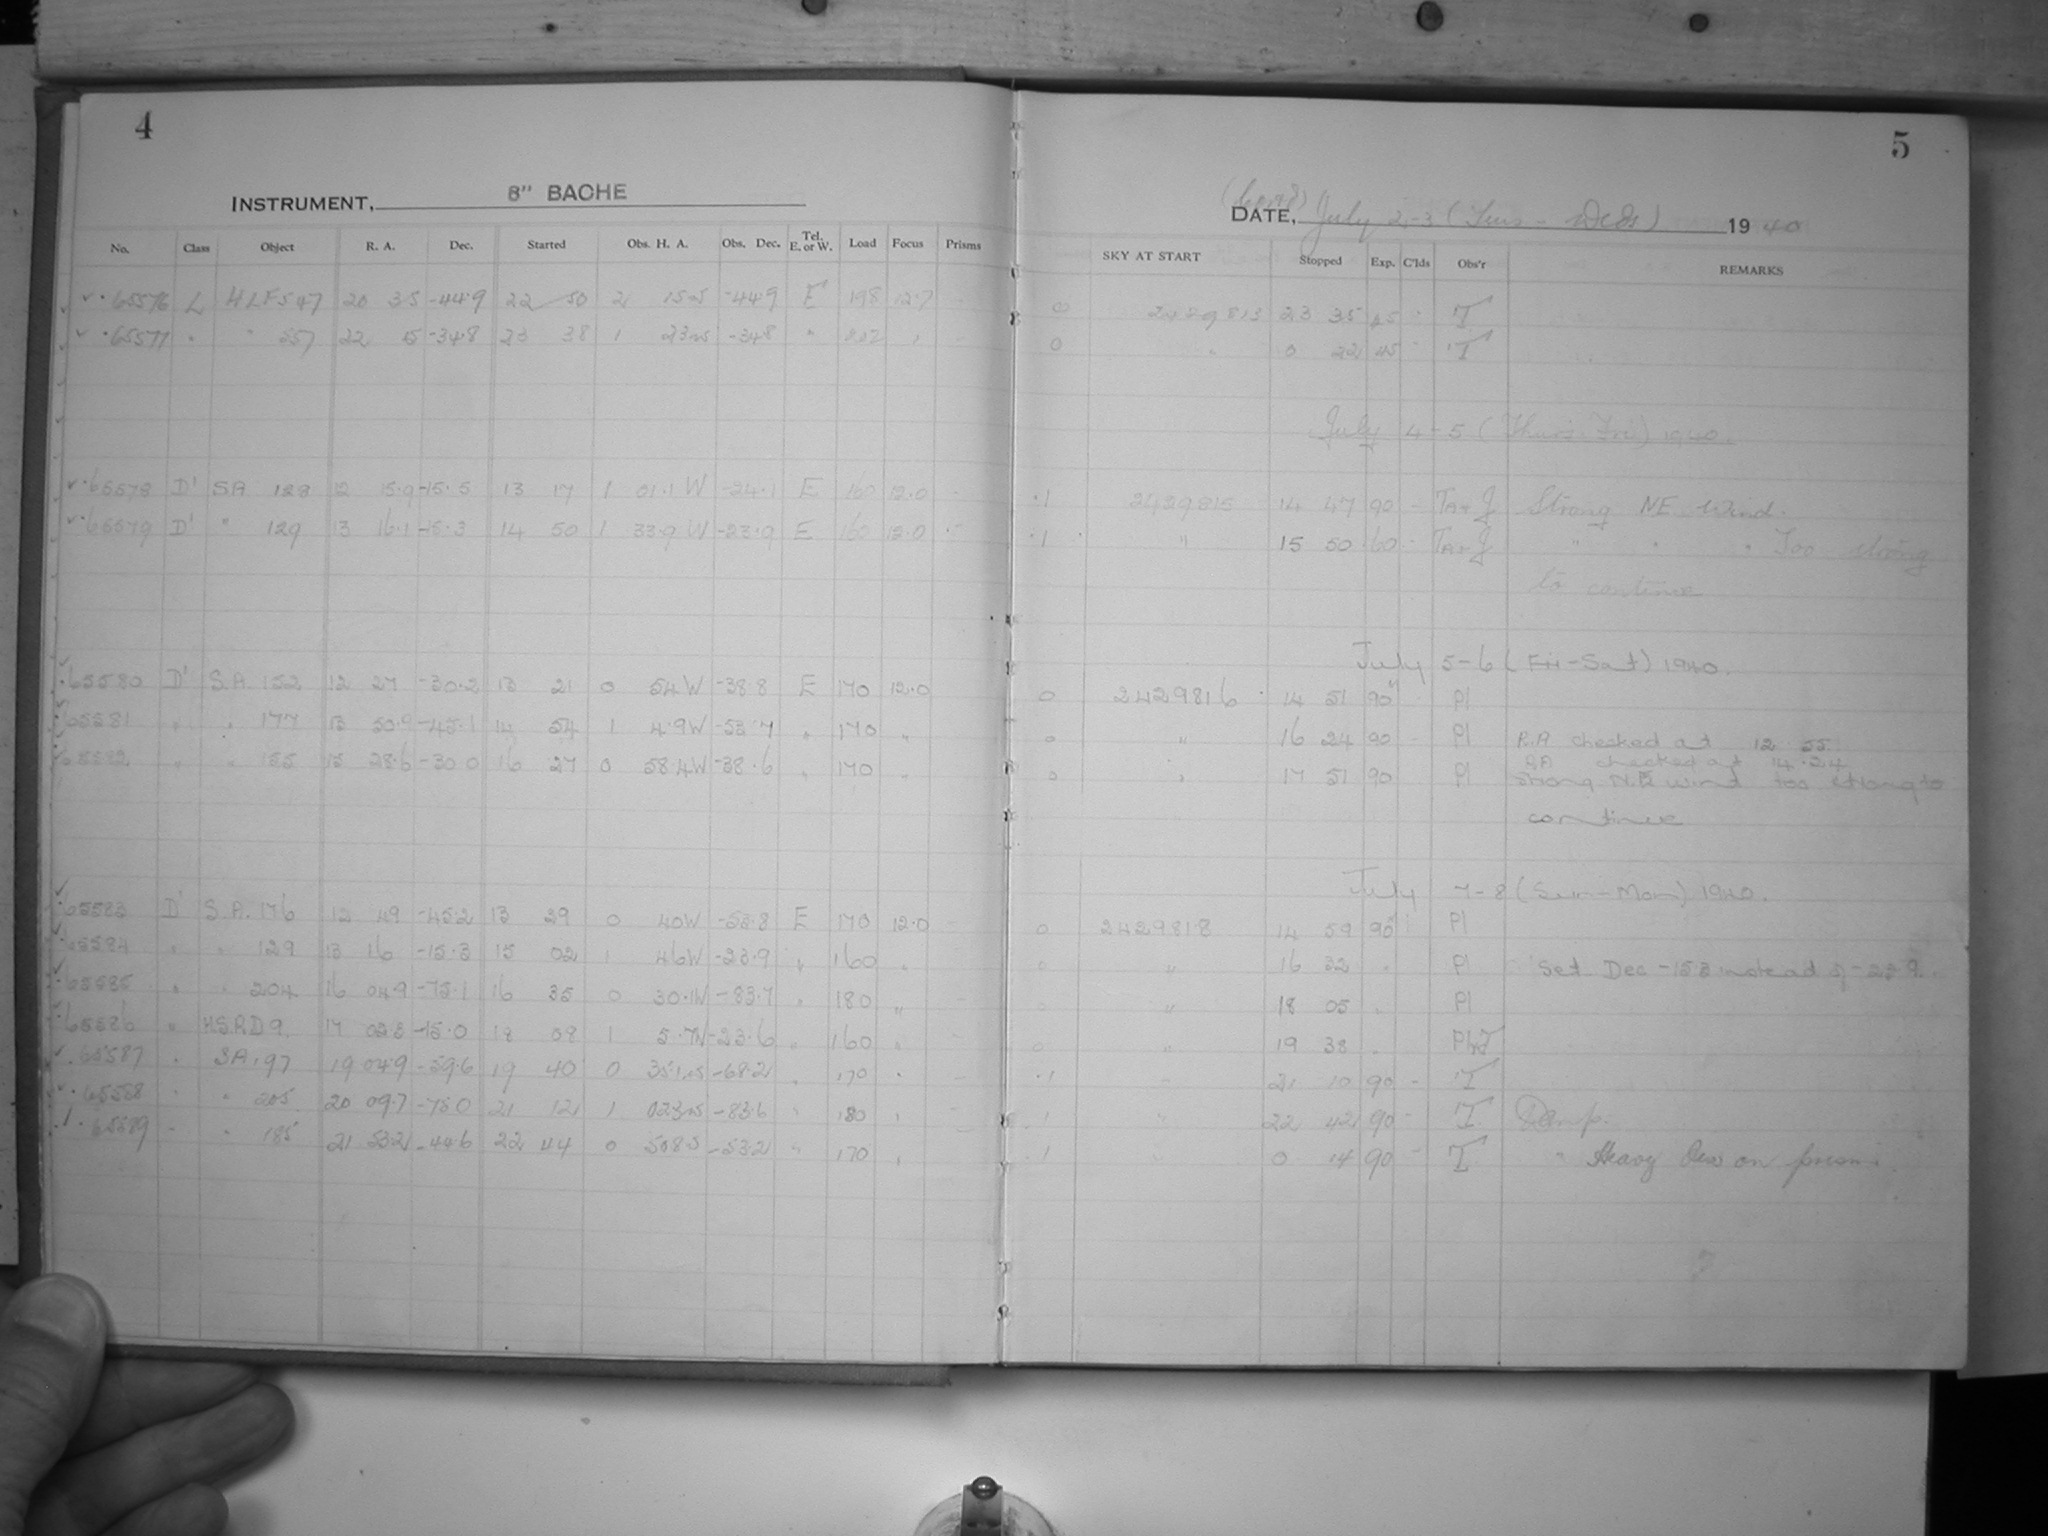 4
INSTRUMENT, 8" BACHE
No. Class Object R. A. Dec. Started Obs. H. A. Obs. Dec. Tel. E. or W. Load Focus Prisms
65576 L HLF 547 20 35 -44.9 22 50 2 -44.9 E 198 12.7
65577 " " 557 22 15 -34.8 23 38 1 -34.8 "
65578 D' SA 128 12 15.9 -15.5 13 17 1 01.1 W -24.1 E 160 12.0 -
65579 D' " 129 13 16.1 -15.3 14 50 1 33.9 W -23.9 E 160 12.0 -
65580 D' S.A. 152 12 27 -30.2 13 21 0 54W -38.8 E 170 12.0
65581 " " 177 13 50.9 -45.1 14 54 1 4.9W -53.7 " 170 "
65582 " " 155 15 28.6 -30.0 16 27 0 58.4W -38.6 " 170 "
65583 D' S.A. 176 12 49 -45.2 13 29 0 40W -53.8 E 170 12.0 -
65584 " " 129 13 16 -15.3 15 02 1 46W -23.9 " 160 "
65585 " " 204 16 04.9 -75.1 16 35 0 30.1W -83.7 " 180 "
65586 " H.S.P.D 9. 17 02.3 -15.0 18 08 1 5.7W -23.6 " 160 "
65587 " SA 197 19 04.9 -59.6 19 40 0 -68.2 " 170 "
65588 " " 205 20 09.7 -75.0 21 12 1 -83.6 " 180 "
65589 " " 185 21 53.2 -44.6 22 44 0 -53.2 " 170 "
5
(Cont'd)
DATE, July 2-3 (Tues - Weds) 1940
SKY AT START Stopped Exp. C'lds Obs'r REMARKS
0 2429813 23 35 45 - T
0 " 0 22 45 - T
July 4-5 (Thurs-Fri) 1940.
.1 2429815 14 47 90 - Strong NE Wind.
.1 " 15 50 60 - " " " Too strong
to continue
July 5-6 (Fri-Sat) 1940.
0 2429816 14 51 90 Pl
0 " 16 24 90 Pl R.A checked at 12 55
RA checked at 14.24
0 " 17 51 90 Pl Strong N.E wind too strong to
continue
July 7-8 (Sun-Mon) 1940.
0 2429818 14 59 90 Pl
0 " 16 32 " Pl Set Dec -15.3 instead of -23.9.
0 " 18 05 " Pl
0 " 19 38 "
.1 " 21 10 90 - T
.1 " 22 42 90 - T Damp.
.1 " 0 14 90 - T " Heavy Dew on prism.